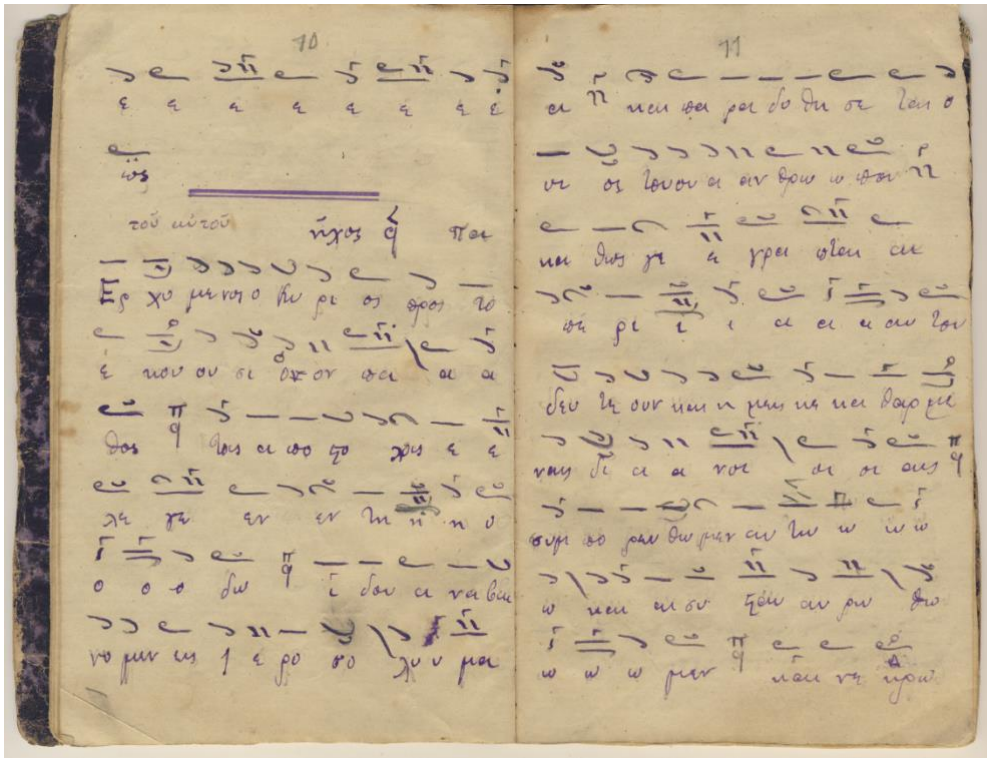 10
ε ε ε ε ε ε ε ε
ως
τοῦ αὐτοῦ ἦχος q πα
Ερ χο με νος ο Κυ ρι ος προς το
ε κου ου σι ον πα α α
θος τοις α πο στο λοις ε ε
λε γε εν εν τη η η ο
ο ο ο δω ι δου α να βαι
νο μεν εις Ι ε ρο σο λυ υ μα
11
αι και πα ρα δο θη σε ται ο
υι ος του ου α αν θρω ω που
κα θως γε ε γρα πται αι
πε ρι ι ι α α α αυ του
δευ τε ουν και η μεις κε κα θαρ με
ναις δι α α νοι οι οι αις
συμ πο ρευ θω μεν αυ τω ω ω ω
ω και αι συ σταυ αυ ρω θω
ω ω ω μεν και νε κρω